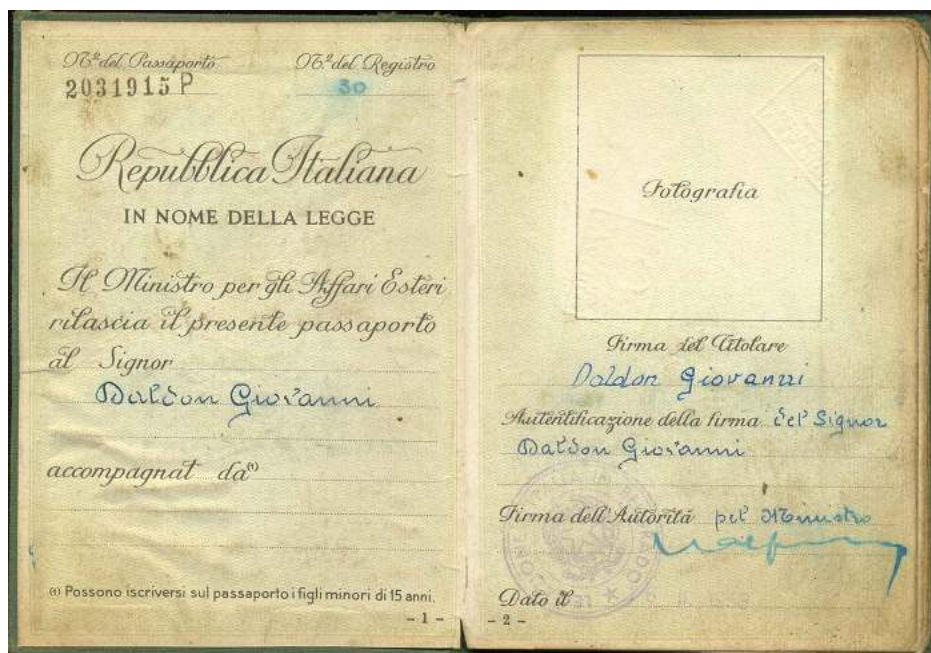 Nº del Passaporto
Nº del Registro
2031915 P
30
Repubblica Italiana
IN NOME DELLA LEGGE
Il Ministro per gli Affari Esteri
rilascia il presente passaporto
al Signor
Daldon Giovanni
accompagnat da(1)
(1) Possono iscriversi sul passaporto i figli minori di 15 anni.
- 1 -
Fotografia
Firma del Titolare
Daldon Giovanni
Autentificazione della firma del Signor
Daldon Giovanni
Firma dell'Autorità pel Ministro
Dato il
- 2 -